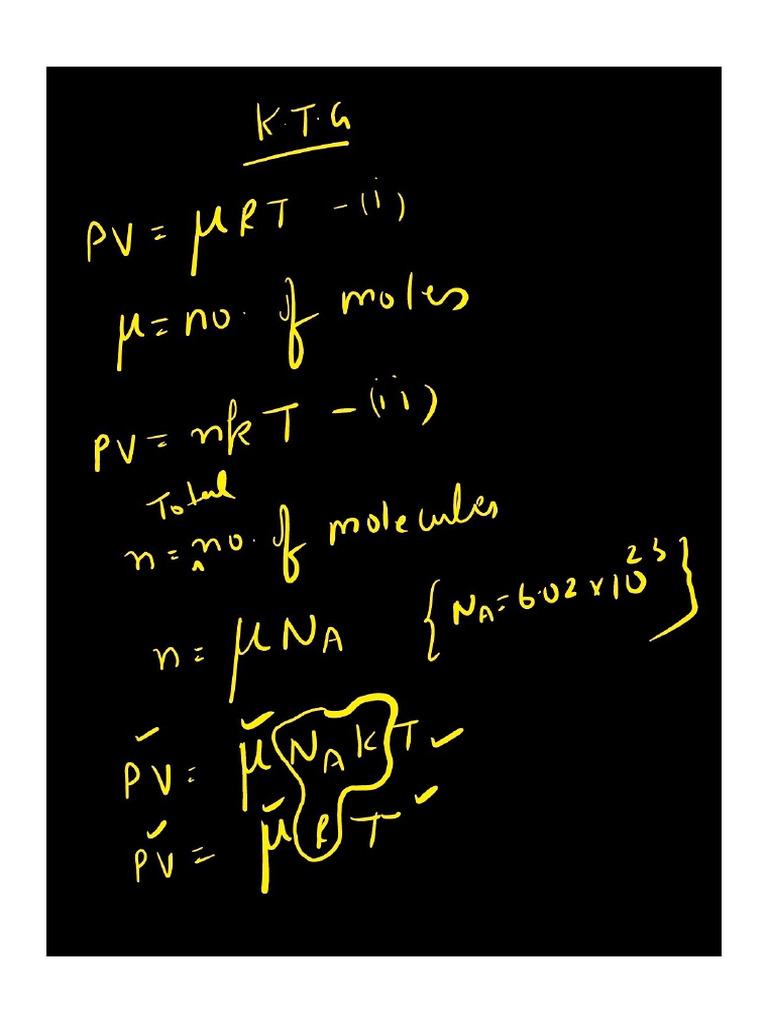 K.T.G
PV = μRT - (i)
μ = no. of moles
PV = nkT - (ii)
Total
n = ^no. of molecules
n = μN_A {N_A = 6.02 x 10^23}
✓ ✓
PV = μN_AkT ✓
✓ ✓ ✓
PV = μRT